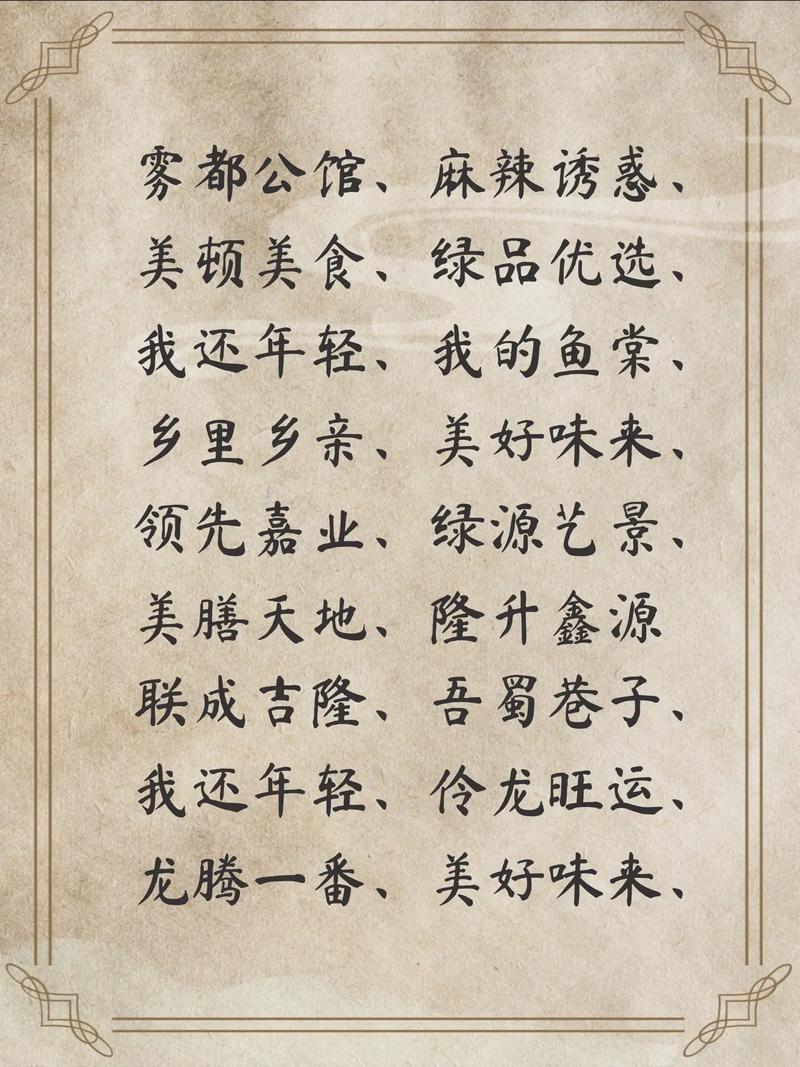 雾都公馆、麻辣诱惑、
美顿美食、绿品优选、
我还年轻、我的鱼棠、
乡里乡亲、美好味来、
领先嘉业、绿源艺景、
美膳天地、隆升鑫源
联成吉隆、吾蜀巷子、
我还年轻、伶龙旺运、
龙腾一番、美好味来、